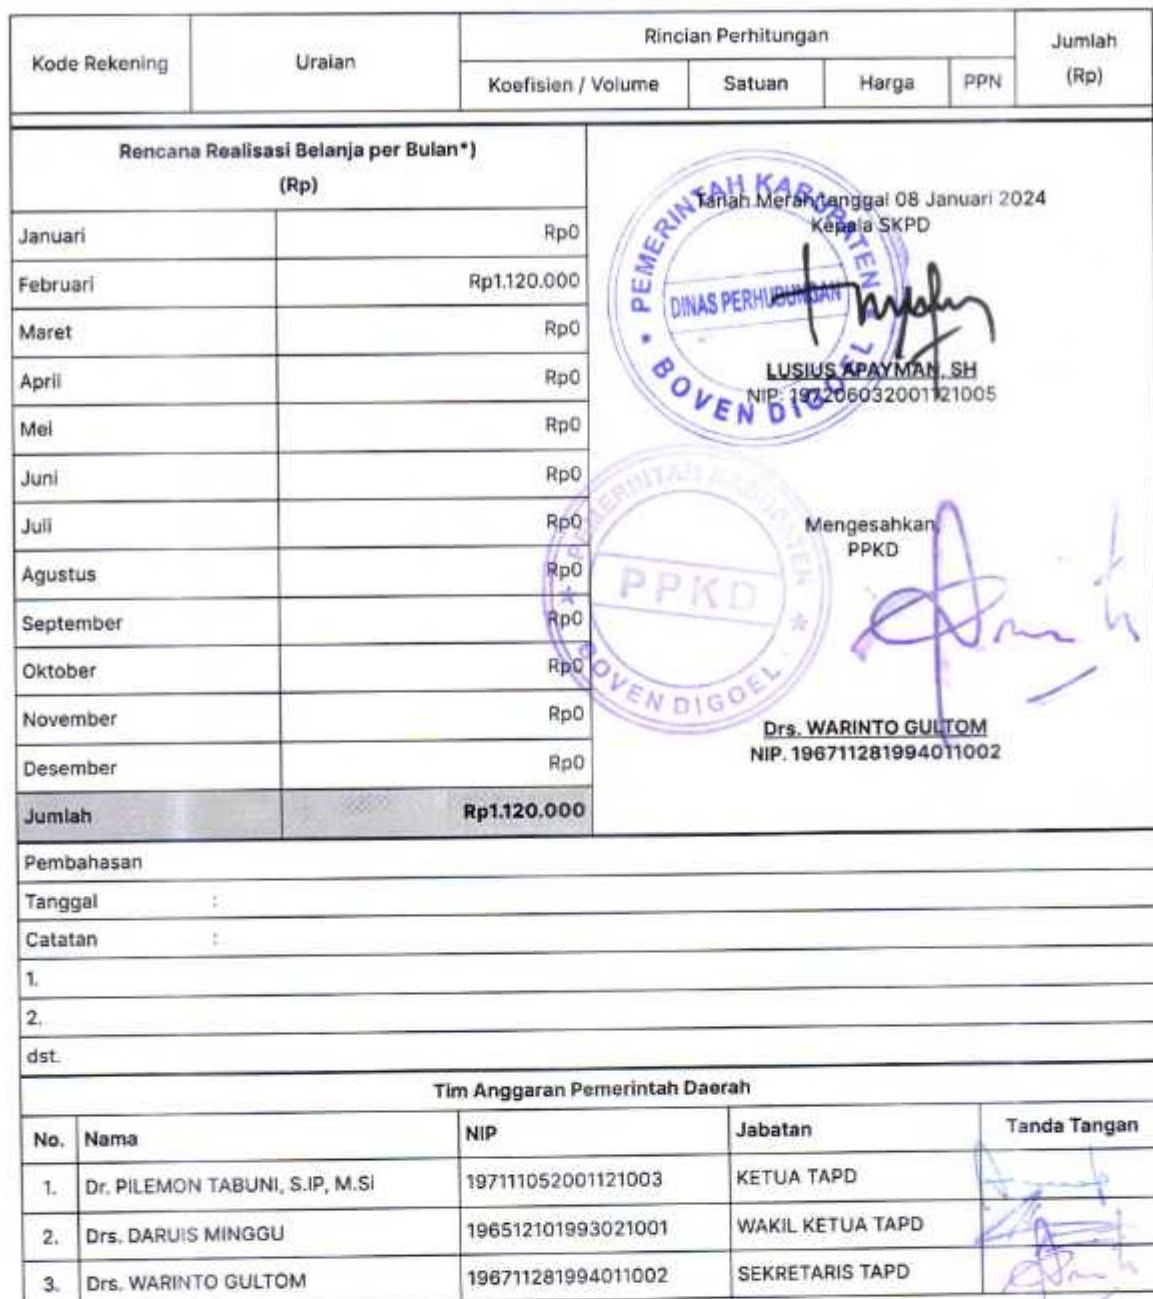 Kode Rekening Uraian Rincian Perhitungan Jumlah (Rp)
Koefisien / Volume Satuan Harga PPN
Rencana Realisasi Belanja per Bulan*)
(Rp)
Januari Rp0
Februari Rp1.120.000
Maret Rp0
April Rp0
Mei Rp0
Juni Rp0
Juli Rp0
Agustus Rp0
September Rp0
Oktober Rp0
November Rp0
Desember Rp0
Jumlah Rp1.120.000
Tanah Merah, tanggal 08 Januari 2024
Kepala SKPD
PEMERINTAH KABUPATEN
DINAS PERHUBUNGAN
BOVEN DIGOEL
LUSIUS APAYMAN, SH
NIP: 197206032001121005
Mengesahkan
PPKD
PEMERINTAH KABUPATEN
PPKD
BOVEN DIGOEL
Drs. WARINTO GULTOM
NIP. 196711281994011002
Pembahasan
Tanggal :
Catatan :
1.
2.
dst.
Tim Anggaran Pemerintah Daerah
No. Nama NIP Jabatan Tanda Tangan
1. Dr. PILEMON TABUNI, S.IP, M.Si 197111052001121003 KETUA TAPD
2. Drs. DARUIS MINGGU 196512101993021001 WAKIL KETUA TAPD
3. Drs. WARINTO GULTOM 196711281994011002 SEKRETARIS TAPD